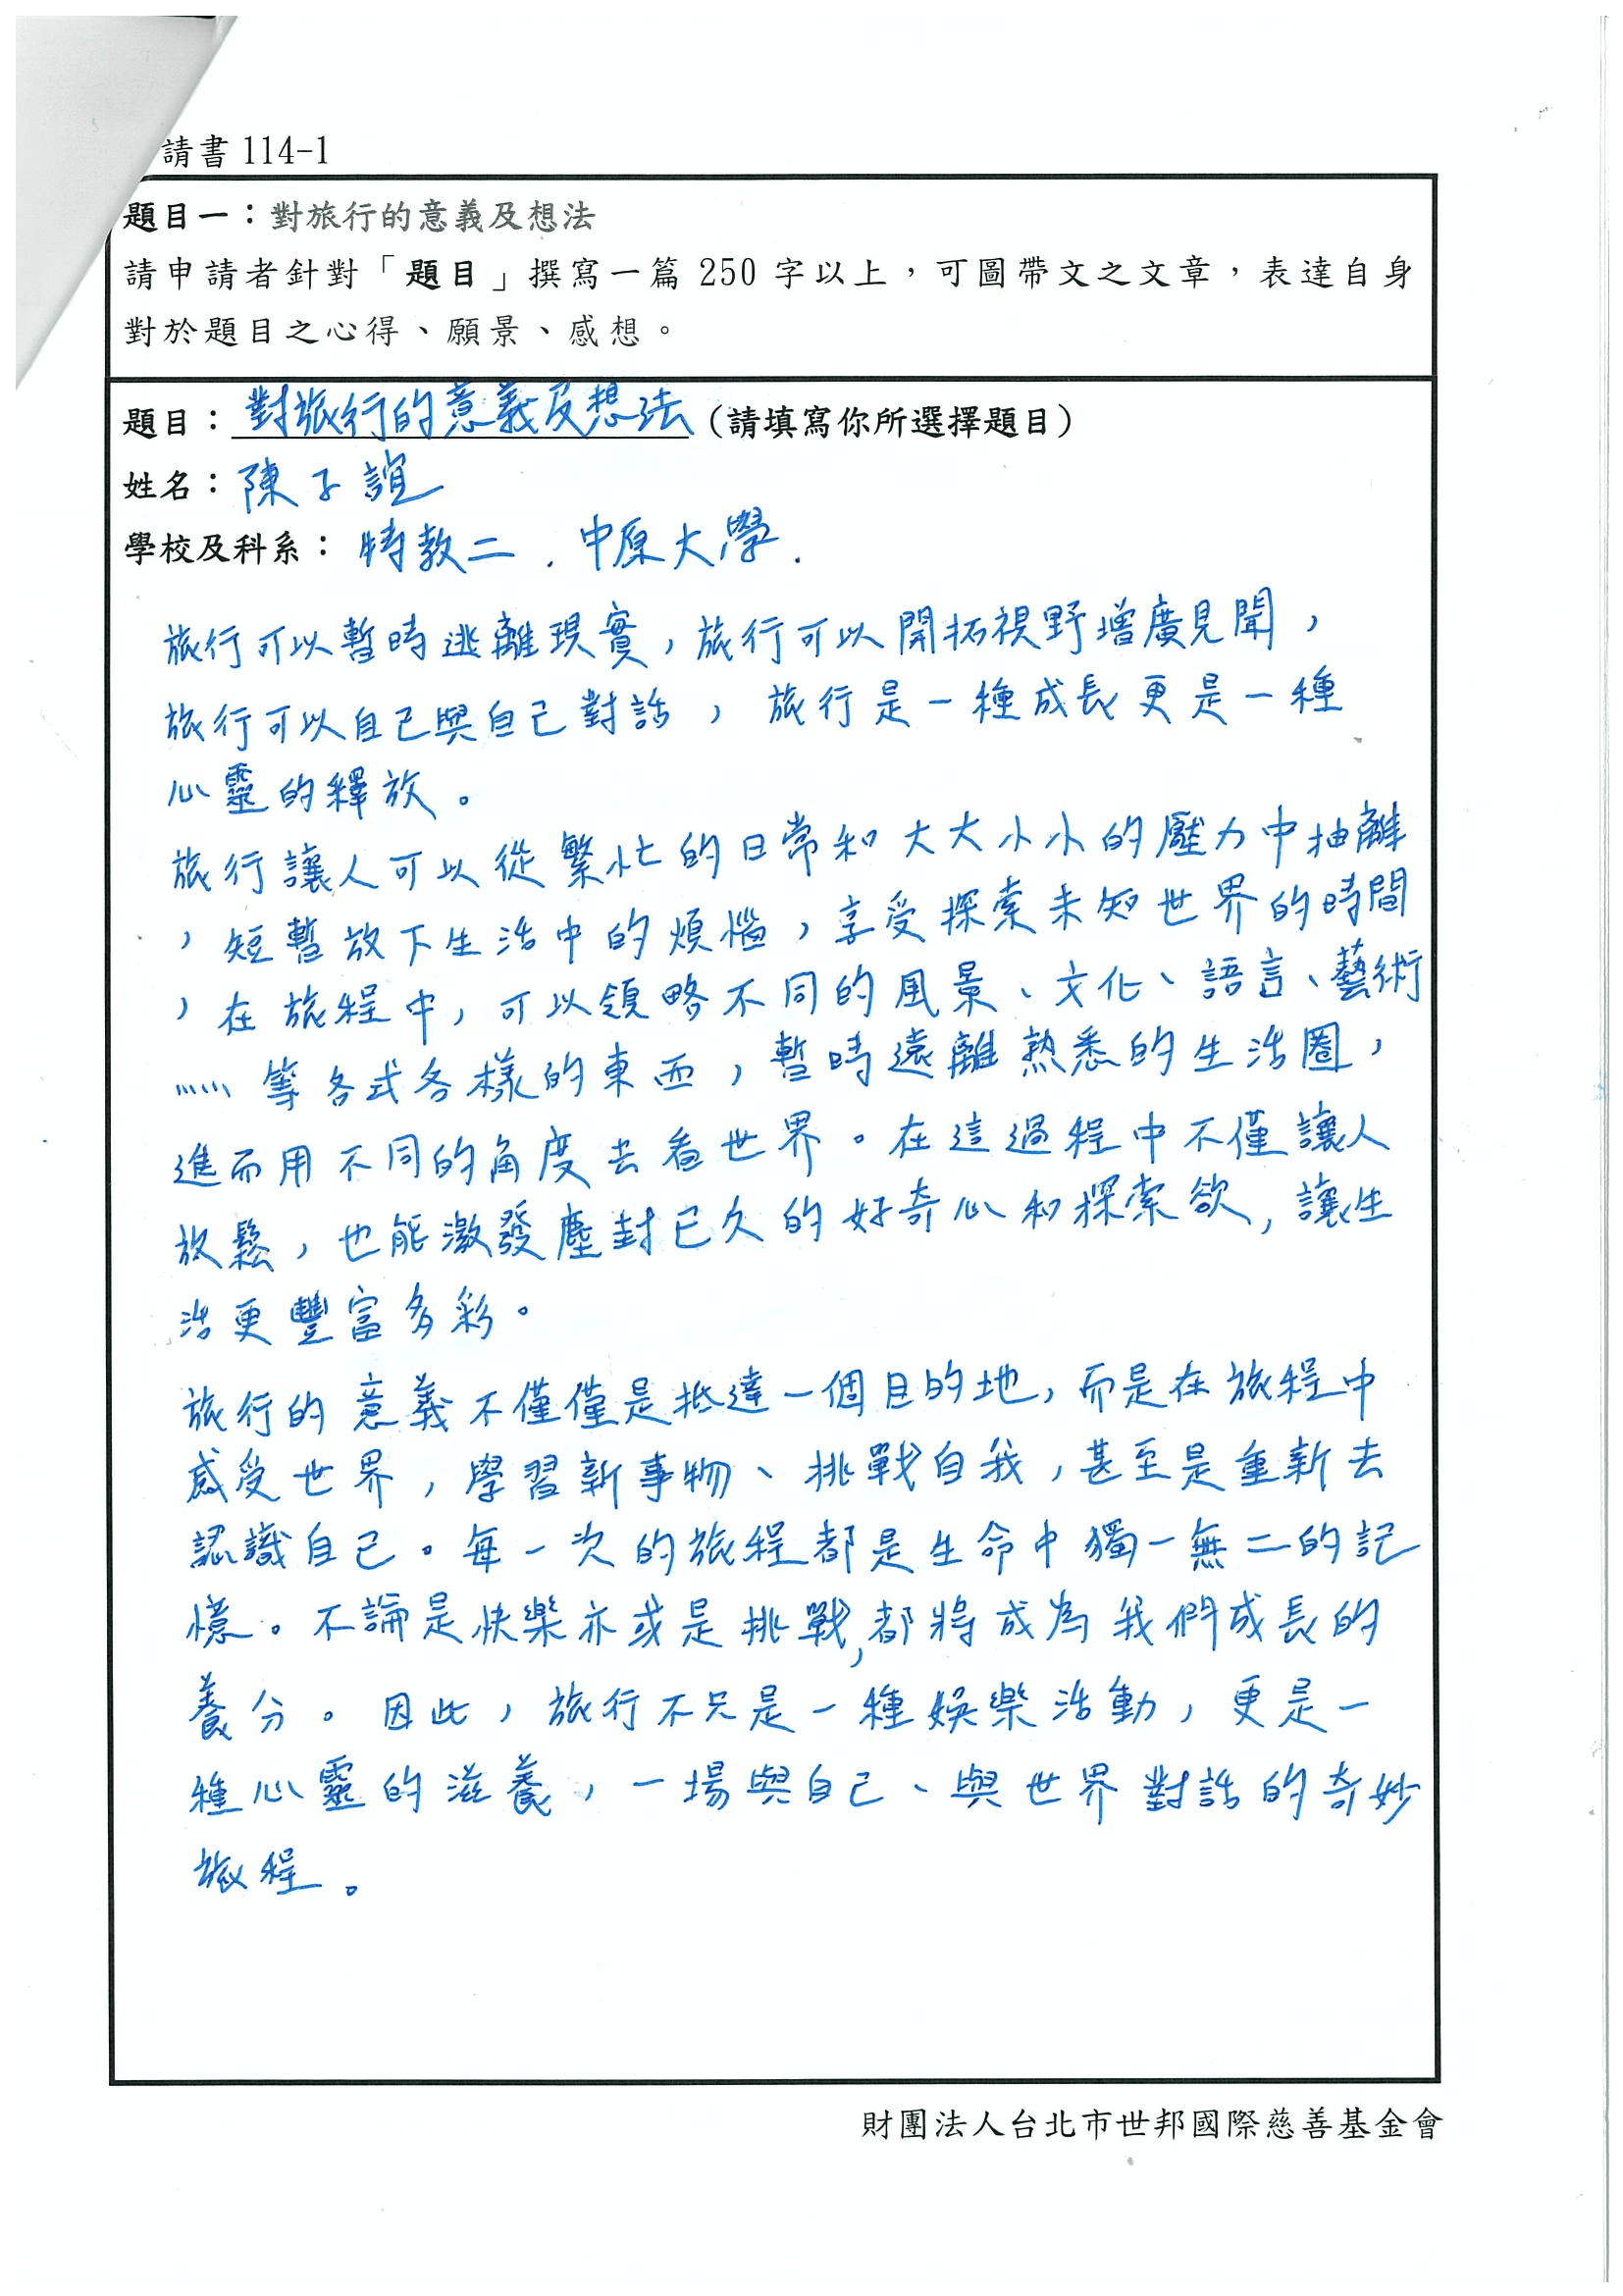 請書 114-1
題目一：對旅行的意義及想法
請申請者針對「題目」撰寫一篇 250 字以上，可圖帶文之文章，表達自身
對於題目之心得、願景、感想。
題目：對旅行的意義及想法（請填寫你所選擇題目）
姓名：陳子誼
學校及科系：特教二．中原大學．
旅行可以暫時逃離現實，旅行可以開拓視野增廣見聞，
旅行可以自己與自己對話，旅行是一種成長更是一種
心靈的釋放。
旅行讓人可以從繁忙的日常和大大小小的壓力中抽離
，短暫放下生活中的煩惱，享受探索未知世界的時間
，在旅程中，可以領略不同的風景、文化、語言、藝術
……等各式各樣的東西，暫時遠離熟悉的生活圈，
進而用不同的角度去看世界。在這過程中不僅讓人
放鬆，也能激發塵封已久的好奇心和探索欲，讓生
活更豐富多彩。
旅行的意義不僅僅是抵達一個目的地，而是在旅程中
感受世界，學習新事物、挑戰自我，甚至是重新去
認識自己。每一次的旅程都是生命中獨一無二的記
憶。不論是快樂亦或是挑戰，都將成為我們成長的
養分。因此，旅行不只是一種娛樂活動，更是一
種心靈的滋養，一場與自己、與世界對話的奇妙
旅程。
財團法人台北市世邦國際慈善基金會